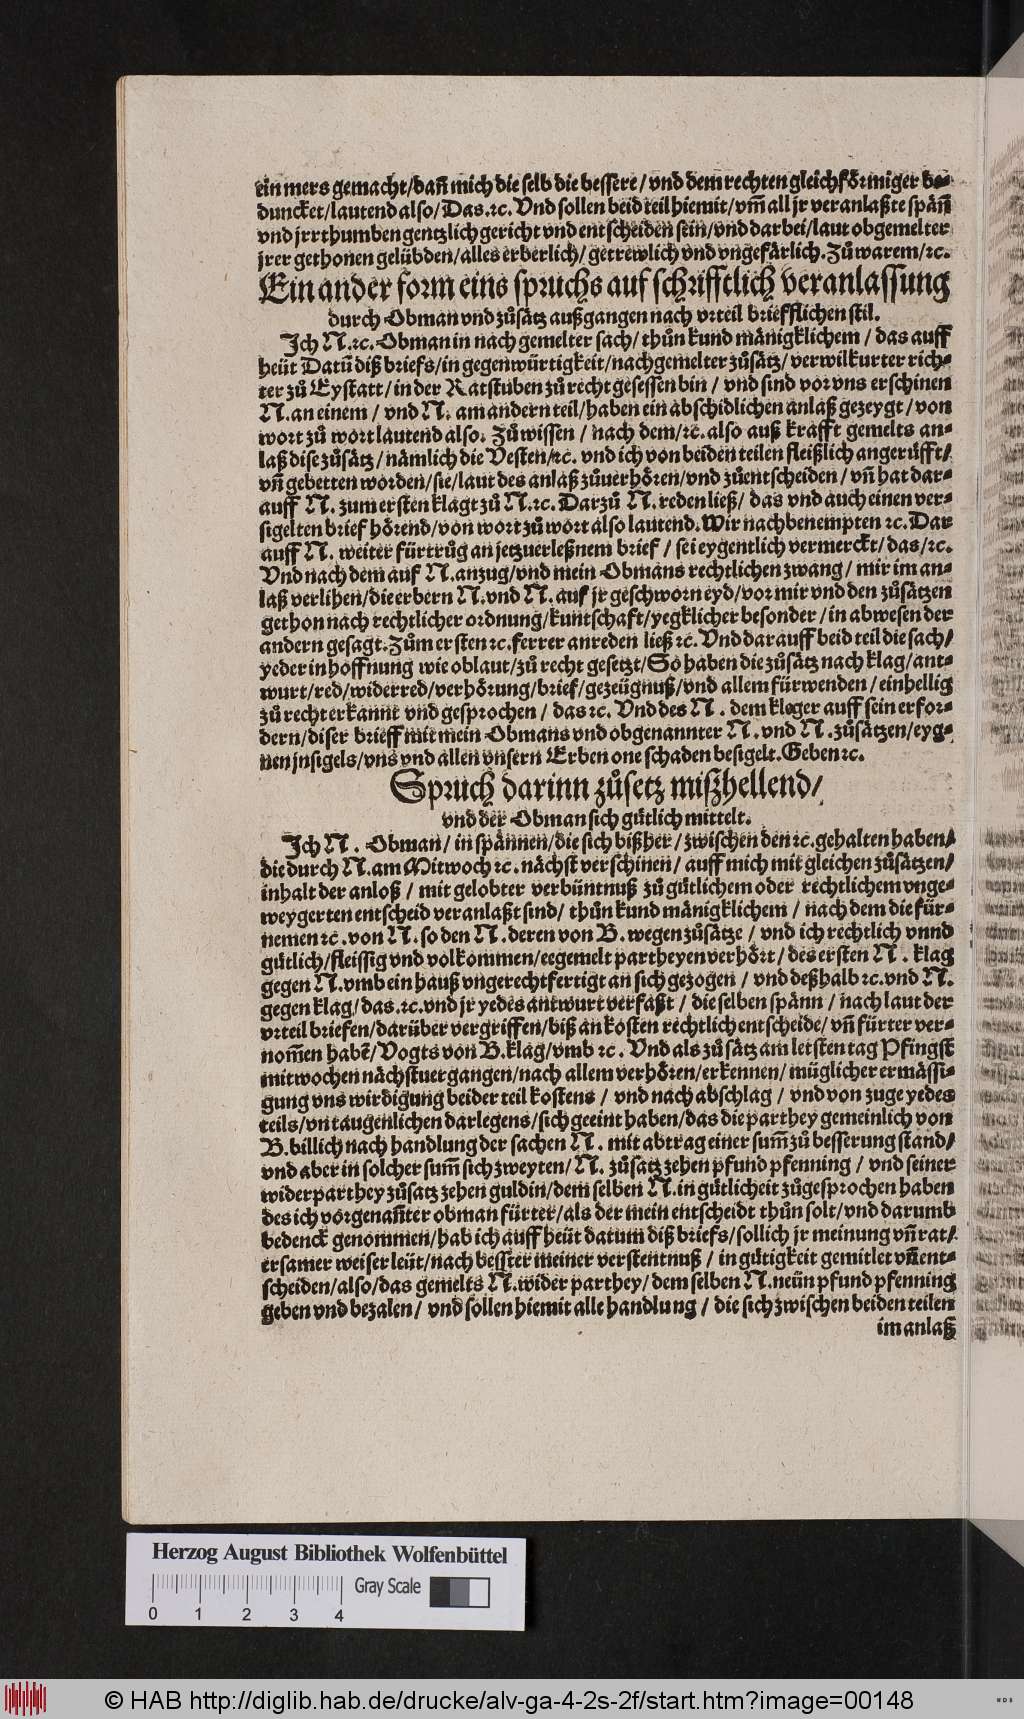 ein mers gemacht/dañ mich die selb die bessere/ vnd dem rechten gleichförmiger be-
duncket/lautend also/Das.ꝛc. Vnd sollen beid teil hiemit/vm̃ all jr veranlaßte späñ
vnd jrrthumben gentzlich gericht vnd entscheiden sein/vnd darbei/laut obgemelter
jrer gethonen gelübden/alles erberlich/ getrewlich vnd vngefärlich.Zů warem/ꝛc.
Ein ander form eins spruchs auf schrifftlich veranlassung
durch Obman vnd zůsätz außgangen nach vrteil briefflichen stil.
Ich N.ꝛc. Obman in nach gemelter sach/ thůn kund mänigklichem / das auff
heüt Datū diß briefs/in gegenwürtigkeit/nachgemelter zůsätz/verwilkurter rich-
ter zů Eystatt/in der Ratstuben zů recht gesessen bin / vnd sind vor vns erschinen
N.an einem / vnd N. am andern teil/haben ein abschidlichen anlaß gezeygt/von
wort zů wort lautend also. Zů wissen / nach dem/ꝛc.also auß krafft gemelts an-
laß dise zůsätz/nämlich die Vesten/ꝛc. vnd ich von beiden teilen fleißlich angerüfft/
vñ gebetten worden/sie/laut des anlaß zůuerhören/vnd zůentscheiden/ vñ hat dar-
auff N. zum ersten klagt zů N.ꝛc. Darzů N.reden ließ/ das vnd auch einen ver-
sigelten brief hörend/von wort zů wort also lautend.Wir nachbenempten ꝛc.Dar
auff N. weiter fürtrůg an jetzuerleßnem brief / sei eygentlich vermerckt/das/ꝛc.
Vnd nach dem auf N.anzug/vnd mein Obmans rechtlichen zwang/ mir im an-
laß verlihen/die erbern N.vnd N.auf jr geschworn eyd/vor mir vnd den zůsätzen
gethon nach rechtlicher ordnung/kuntschaft/yegklicher besonder/in abwesen der
andern gesagt.Zům ersten ꝛc.ferrer anreden ließ ꝛc. Vnd darauff beid teil die sach/
yeder in hoffnung wie oblaut/zů recht gesetzt/So haben die zůsätz nach klag/ant-
wurt/red/widerred/verhörung/brief/gezeügnuß/vnd allem fürwenden/einhellig
zů recht erkannt vnd gesprochen / das ꝛc. Vnd des N. dem kleger auff sein erfor-
dern/diser brieff mit mein Obmans vnd obgenannter N.vnd N.zůsätzen/eyg-
nen jnsigels/vns vnd allen vnsern Erben one schaden besigelt.Geben ꝛc.
Spruch darinn zůsetz mißhellend/
vnd der Obman sich gütlich mittelt.
Ich N. Obman/ in spännen/die sich bißher/zwischen den ꝛc.gehalten haben/
die durch N.am Mitwoch ꝛc. nächst verschinen/ auff mich mit gleichen zůsätzen/
inhalt der anloß / mit gelobter verbüntnuß zů gütlichem oder rechtlichem vnge-
weygerten entscheid veranlaßt sind/ thůn kund mänigklichem / nach dem die für-
nemen ꝛc.von N.so den N.deren von B. wegen zůsätze / vnd ich rechtlich vnnd
gütlich/fleissig vnd volkommen/eegemelt partheyen verhört/des ersten N. klag
gegen N.vmb ein hauß vngerechtfertigt an sich gezogen / vnd deßhalb ꝛc.vnd N.
gegen klag/das.ꝛc.vnd jr yedes antwurt verfaßt / die selben spänn / nach laut der
vrteil briefen/darüber vergriffen/biß an kosten rechtlich entscheide/vñ fürter ver-
nom̃en habē/Vogts von B.klag/vmb ꝛc. Vnd als zůsätz am letsten tag Pfingst
mitwochen nächstuergangen/nach allem verhören/erkennen/ müglicher ermässi-
gung vns wirdigung beider teil kostens / vnd nach abschlag / vnd von zuge yedes
teils/vn taugenlichen darlegens/sich geeint haben/das die parthey gemeinlich von
B.billich nach handlung der sachen N. mit abtrag einer sum̃ zů besserung stand/
vnd aber in solcher sum̃ sich zweyten/N. zůsatz zehen pfund pfenning / vnd seiner
widerparthey zůsatz zehen guldin/dem selben N.in gütlicheit zůgesprochen haben
des ich vorgenañter obman fürter/als der mein entscheidt thůn solt/vnd darumb
bedenck genommen/hab ich auff heüt datum diß briefs/sollich jr meinung vñ rat/
ersamer weiser leüt/nach bester meiner verstentnuß / in gütigkeit gemitlet vñ ent-
scheiden/also/das gemelts N.wider parthey/dem selben N.neün pfund pfenning
geben vnd bezalen/ vnd sollen hiemit alle handlung / die sich zwischen beiden teilen
im anlaß
Herzog August Bibliothek Wolfenbüttel
Gray Scale
0 1 2 3 4
© HAB http://diglib.hab.de/drucke/alv-ga-4-2s-2f/start.htm?image=00148